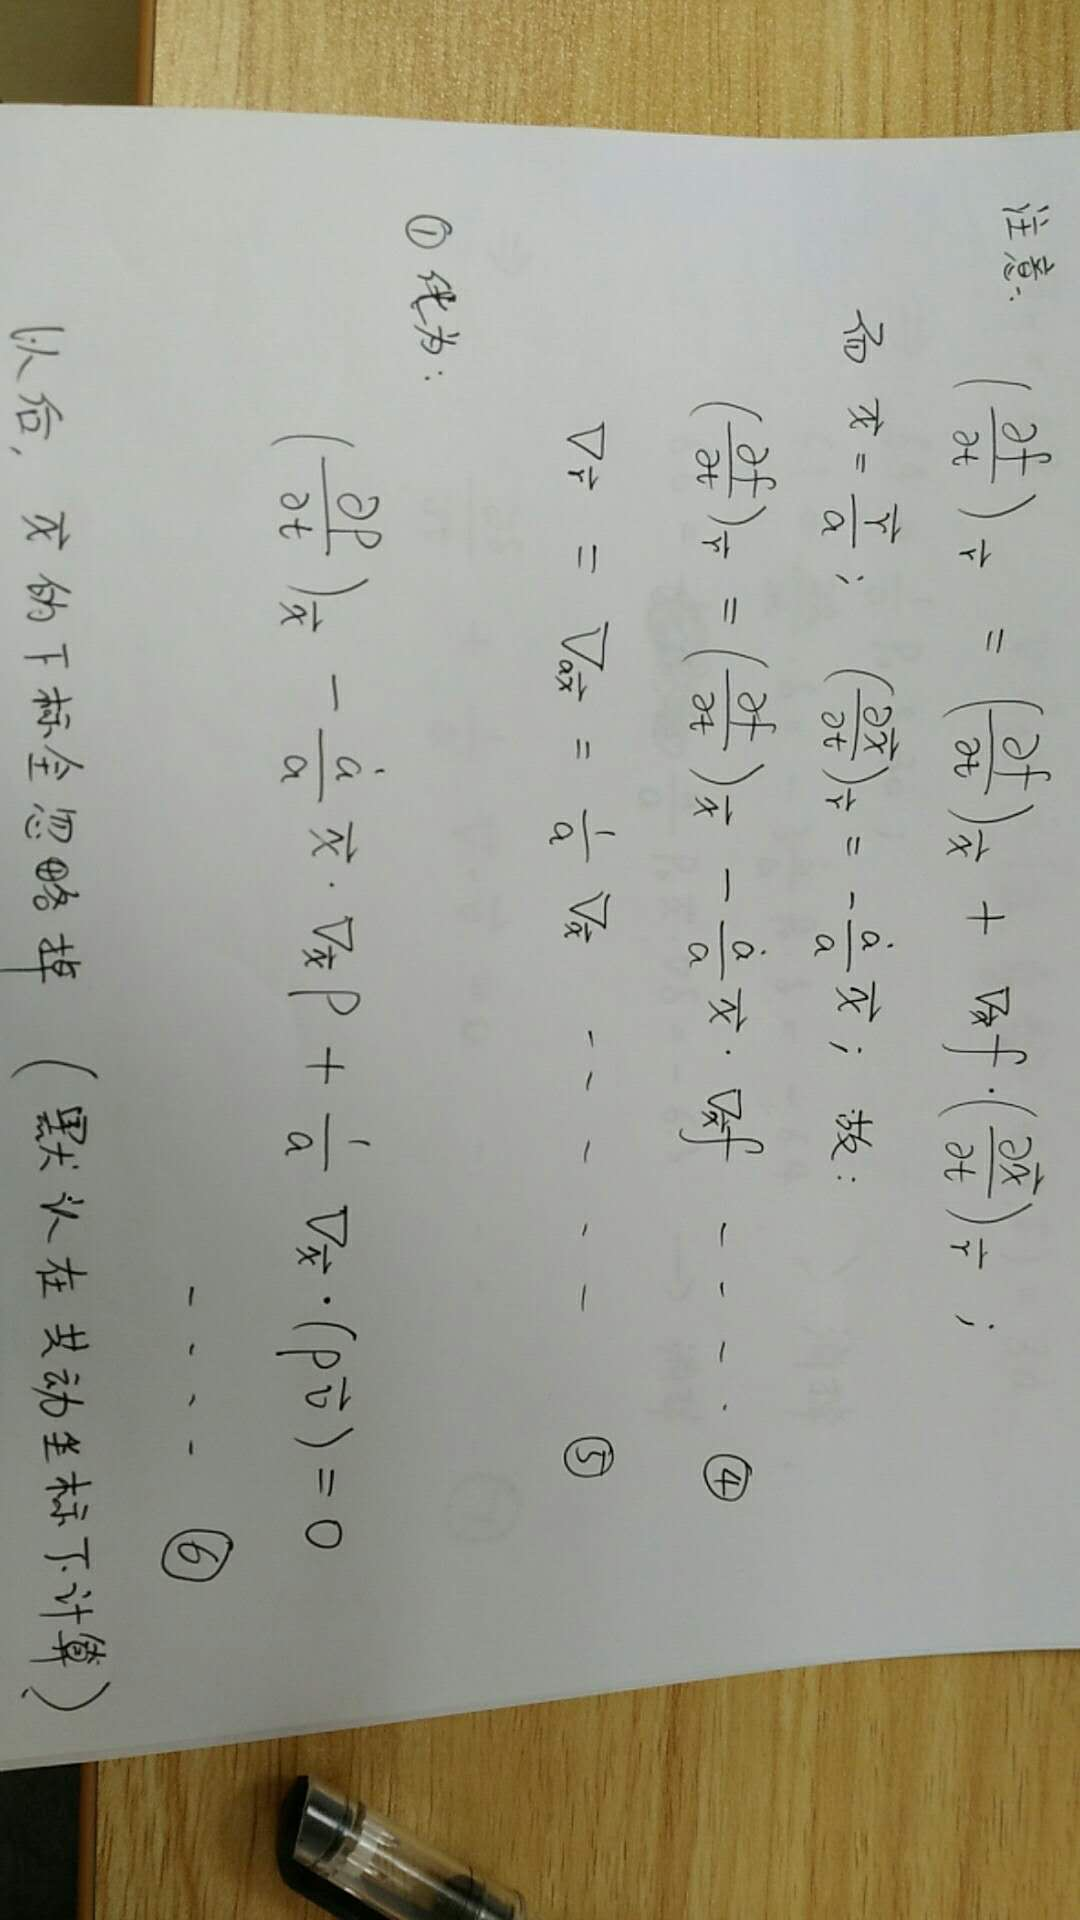 注意: (∂f/∂t)_{\vec{r}} = (∂f/∂t)_{\vec{x}} + ∇_{\vec{x}}f · (∂\vec{x}/∂t)_{\vec{r}} ;
而 \vec{x} = \vec{r}/a ; (∂\vec{x}/∂t)_{\vec{r}} = - \dot{a}/a \vec{x} ; 故:
(∂f/∂t)_{\vec{r}} = (∂f/∂t)_{\vec{x}} - \dot{a}/a \vec{x} · ∇_{\vec{x}}f - - - · ④
∇_{\vec{r}} = ∇_{a\vec{x}} = 1/a ∇_{\vec{x}} - - - - - ⑤
① 化为:
(∂ρ/∂t)_{\vec{x}} - \dot{a}/a \vec{x} · ∇_{\vec{x}}ρ + 1/a ∇_{\vec{x}} · (ρ\vec{v}) = 0
- - - - ⑥
以后, \vec{x} 的下标全忽略掉 (默认在共动坐标下计算)